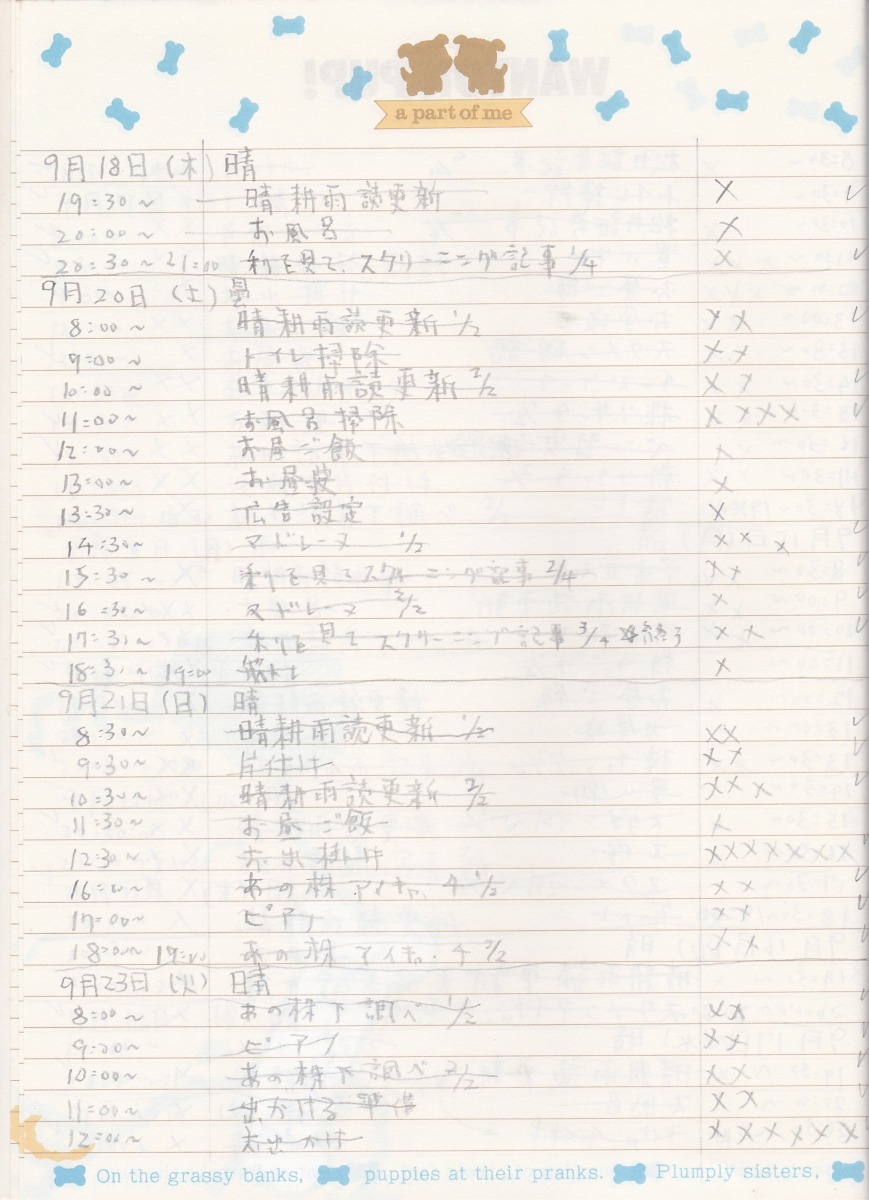 a part of me
9月18日(木) 晴
19:30~ 晴耕雨読更新 X ✓
20:00~ お風呂 X
20:30~21:00 利を見て、スクリーニング記事 1/4 X ✓
9月20日(土) 曇
8:00~ 晴耕雨読更新 1/2 X X ✓
9:00~ トイレ掃除 X X
10:00~ 晴耕雨読更新 2/2 X X ✓
11:00~ お風呂掃除 X X X X ✓
12:00~ お昼ご飯 X
13:00~ お昼寝 X
13:30~ 広告設定 X
14:30~ マドレーヌ 1/2 X X X ✓
15:30~ 利を見てスクリーニング記事 2/4 X X ✓
16:30~ マドレーヌ 2/2 X ✓
17:30~ 利を見てスクリーニング記事 3/4 終了 X X ✓
18:30~19:00 筋トレ X
9月21日(日) 晴
8:30~ 晴耕雨読更新 1/2 X X ✓
9:30~ 片付け X X ✓
10:30~ 晴耕雨読更新 2/2 X X X ✓
11:30~ お昼ご飯 X
12:30~ お出掛け X X X X X X X ✓
16:00~ あの株 1/2 X X ✓
17:00~ ピアノ X X ✓
18:00~19:00 あの株 2/2 X X ✓
9月23日(火) 晴
8:00~ あの株下調べ 1/2 X X ✓
9:00~ ピアノ X X ✓
10:00~ あの株下調べ 2/2 X X ✓
11:00~ 出かける準備 X X ✓
12:00~ お出かけ X X X X X X ✓
On the grassy banks, puppies at their pranks. Plumply sisters,